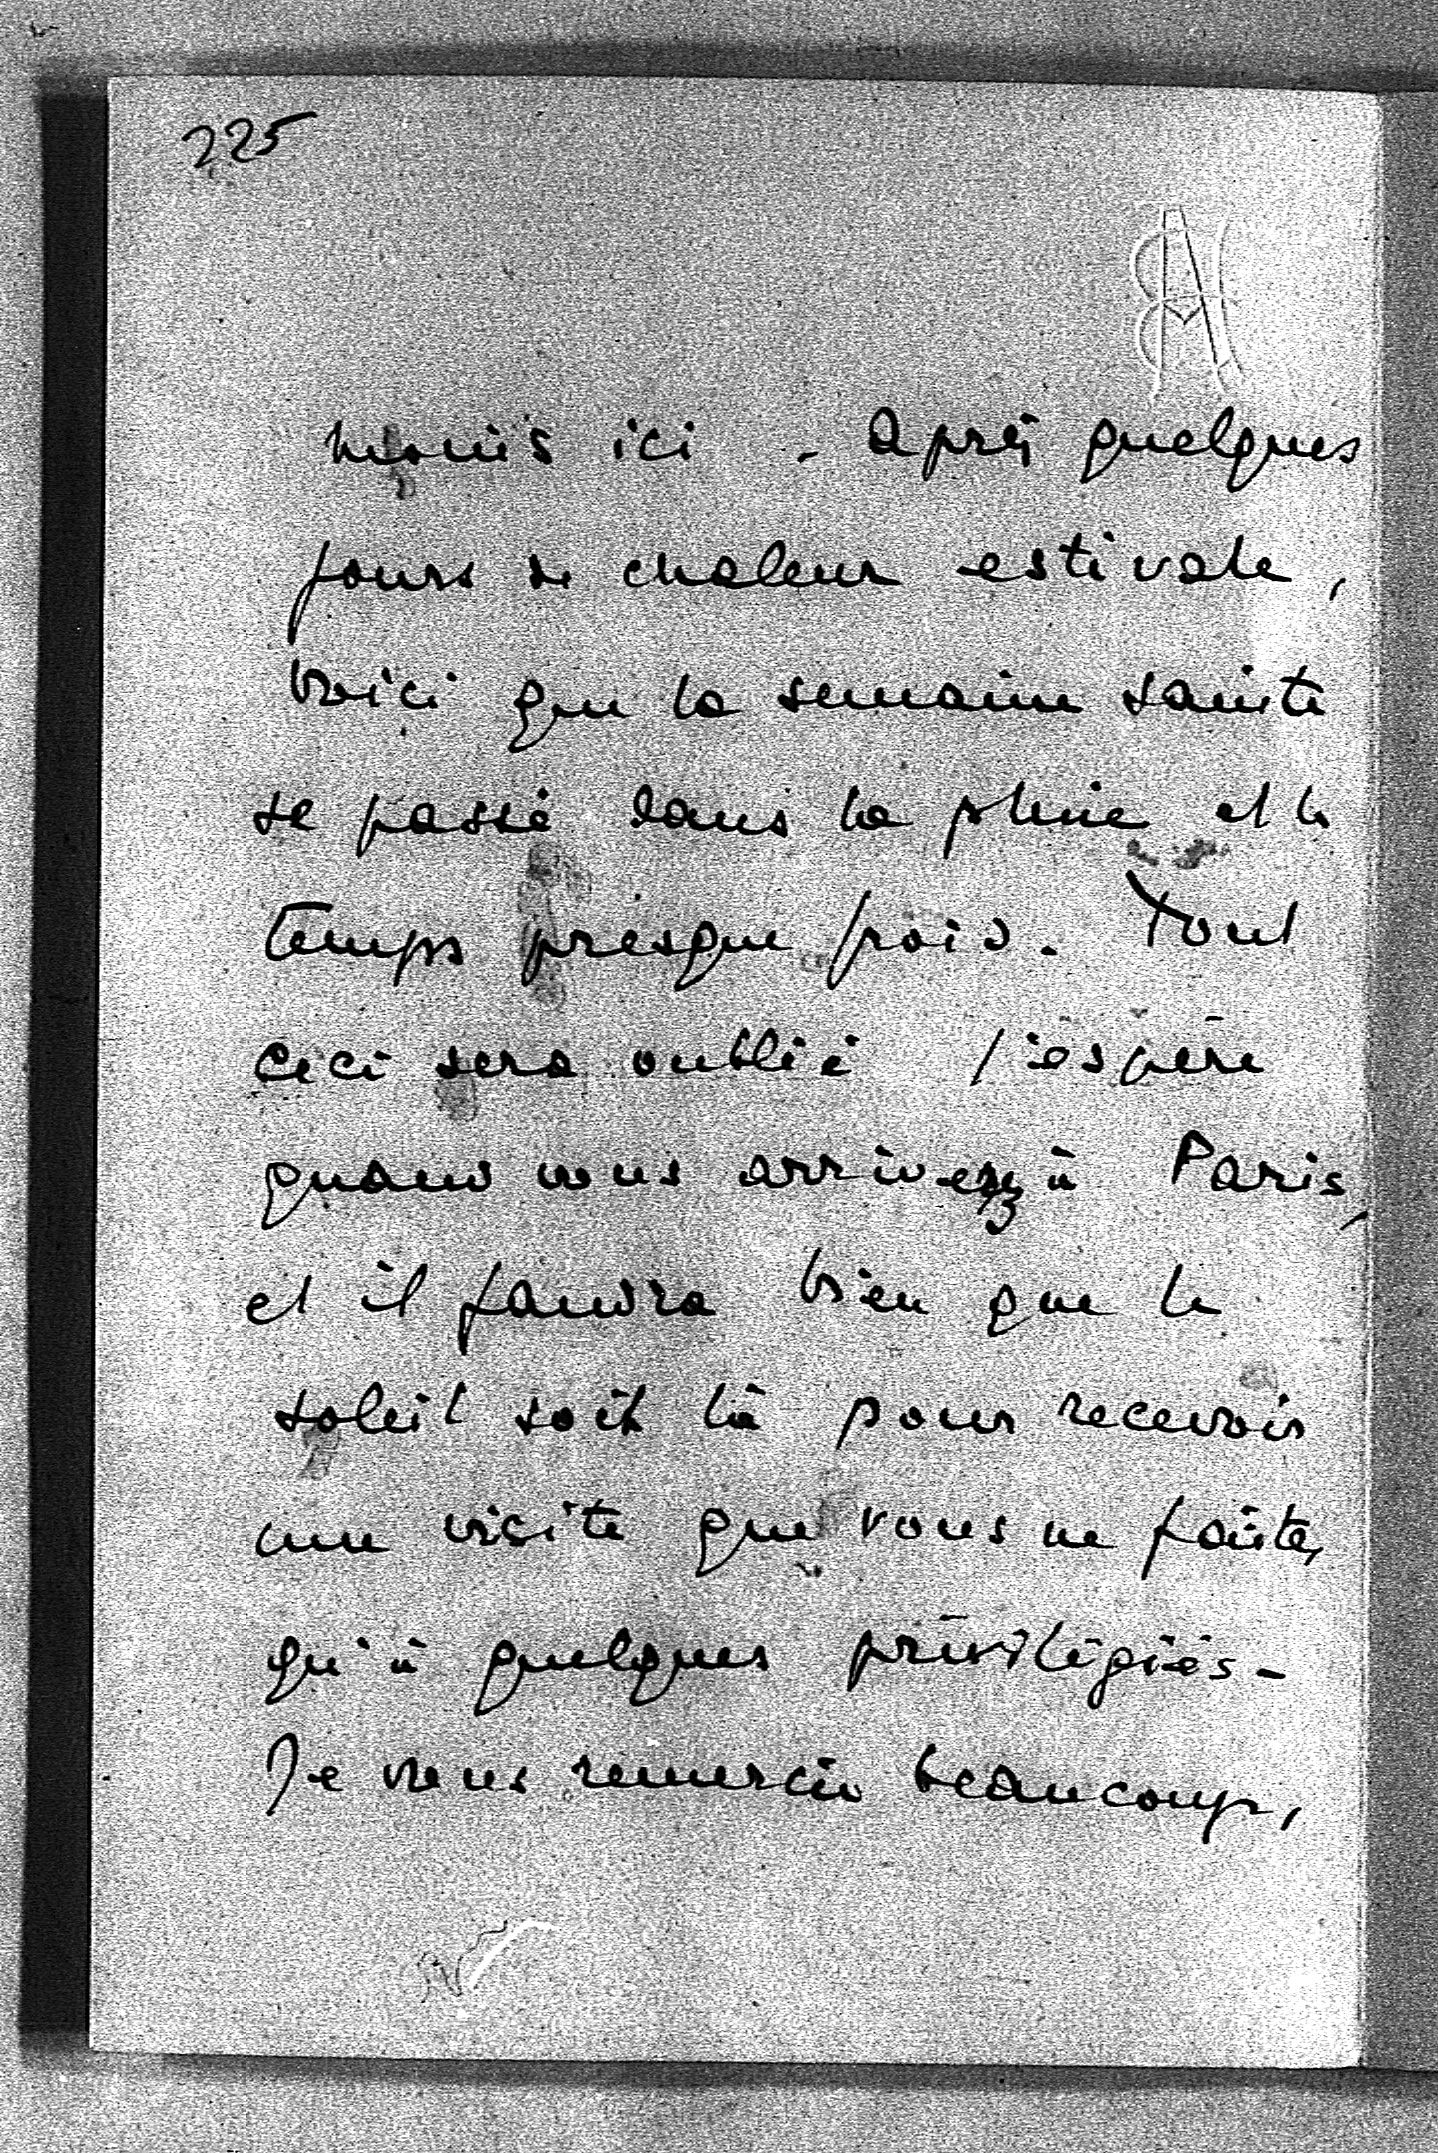 225
moins ici - Après quelques
jours de chaleur estivale,
voici que la semaine sainte
se passe dans la pluie et le
temps presque froid. Tout
ceci sera oublié j'espère
quand vous arriverez à Paris,
et il faudra bien que le
soleil soit là pour recevoir
une visite que vous ne faites
qu'à quelques privilégiés -
Je vous remercie beaucoup,